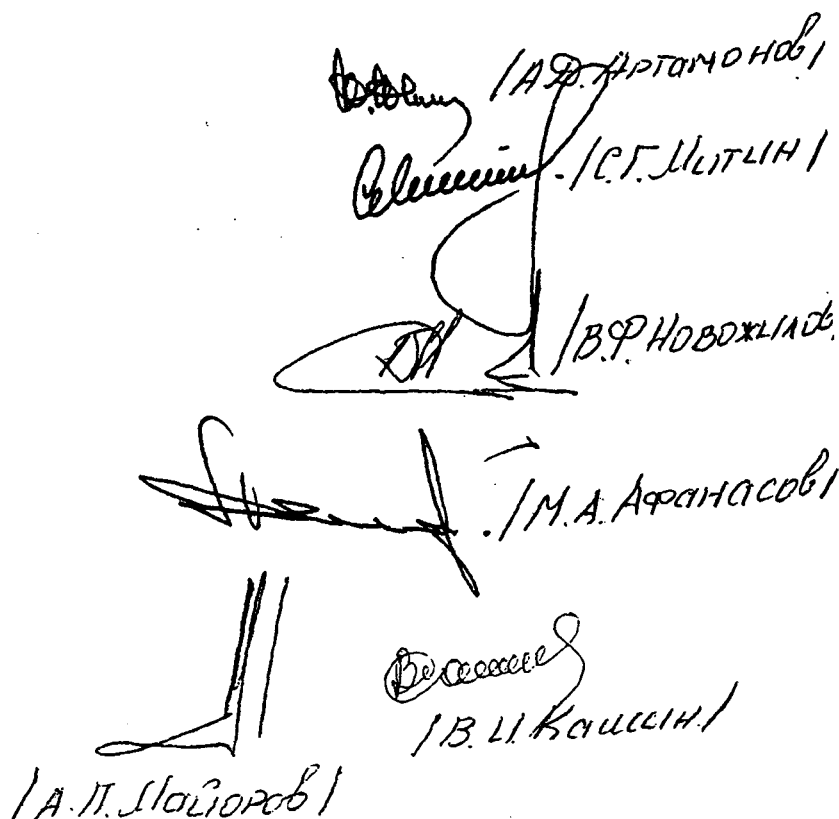 /А.Д. Артамонов/
/С.Г. Митин/
/В.Ф. Новожилов
/М.А. Афанасов/
/В.И. Кашин/
/А.П. Майоров/